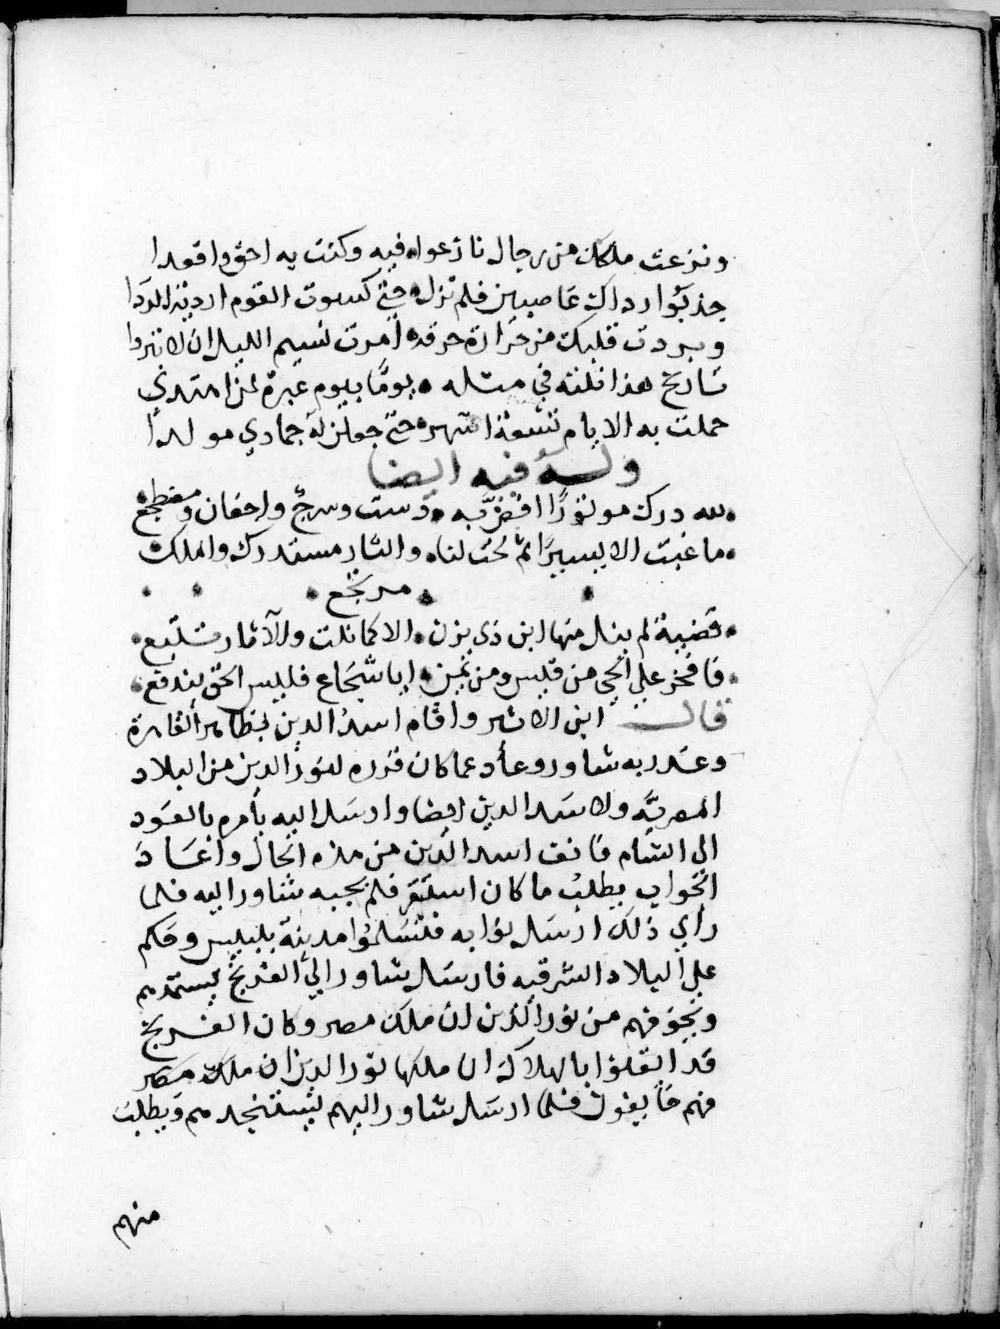 ونزعت ملكك من رجال نازعوا فيه وكنت به احق واقعدا
جذبوا رداك غاصبين فلم تزل حتى كسوت القوم اردية الردا
وبردت قلبك من حرارة حرقة امرت نسيم الليل ان لا تبردا
تاريخ هذا نلته في مثله يوما بيوم عبرة لمن اهتدى
حملت به الايام تسعة اشهر حتى جعلن له جمادي مولدا
وله فيه ايضا
لله درك موتورا اقض به دست وسرج واجفان ومضطجع
ما غبت الا يسيرا ثم لحت لنا والثار مستدرك والملك
مرتجع
قضية لم ينل منها ابن ذي يزن الا كما نلت والآثار تتبع
فافخر علي الحي من قيس ومن يمن ابا شجاع فليس الحق يندفع
قال ابن الاثير واقام اسد الدين بظاهر القاهرة
وغدر به شاور وعاد عما كان قرره لنور الدين من البلاد
المصرية ولاسد الدين ايضا وارسل اليه يأمره بالعود
الي الشام فانف اسد الدين من هذه الحال واعاد
الجواب يطلب ما كان استقر فلم يجبه شاور اليه فلما
رأي ذلك ارسل نوابه فتسلموا مدينة بلبيس وحكم
علي البلاد الشرقيه فارسل شاور الي الفرنج يستمدهم
ويخوفهم من نور الدين ان ملك مصر وكان الفرنج
قد ايقنوا بالهلاك ان ملكها نور الدين ان ملك مصر
فهم خايفون فلما ارسل شاور اليهم يستنجدهم ويطلب
منهم